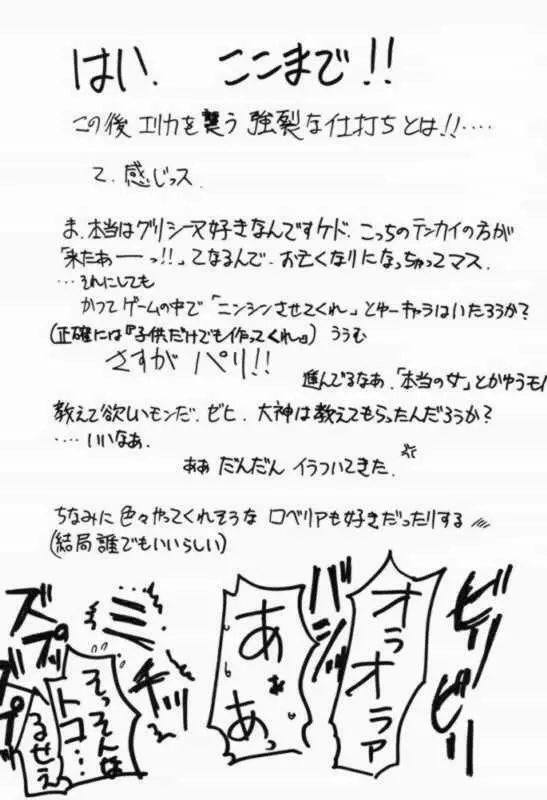 はい、 ここまで!!
この後 エリカを襲う 強裂な仕打ちとは!!‥‥
て、感じっス。
ま、本当はグリシーヌ好きなんですケド、こっちのテンカイの方が
「来たあーっ!!」てなるんで、お亡くなりになっちゃってマス。
‥それにしても
かつてゲームの中で「ニンシンさせてくれ」とゆーキャラはいたろうか?
(正確には『子供だけでも作ってくれ』) ううむ
さすが パリ!!
進んでるなあ、「本当の女」とかゆうモノ
教えて欲しいモンだ、ゼヒ、大神は教えてもらったんだろうか?
‥‥いいなあ、
ああ だんだん イラついてきた、
ちなみに 色々やってくれそうな ロベリアも好きだったりする
(結局誰でもいいらしい)
ビリビリ
オラオラァ
バシ
あぁあっ
ミチッ
そっそんなトコ‥
るせえ
ズプッ
ズプッ